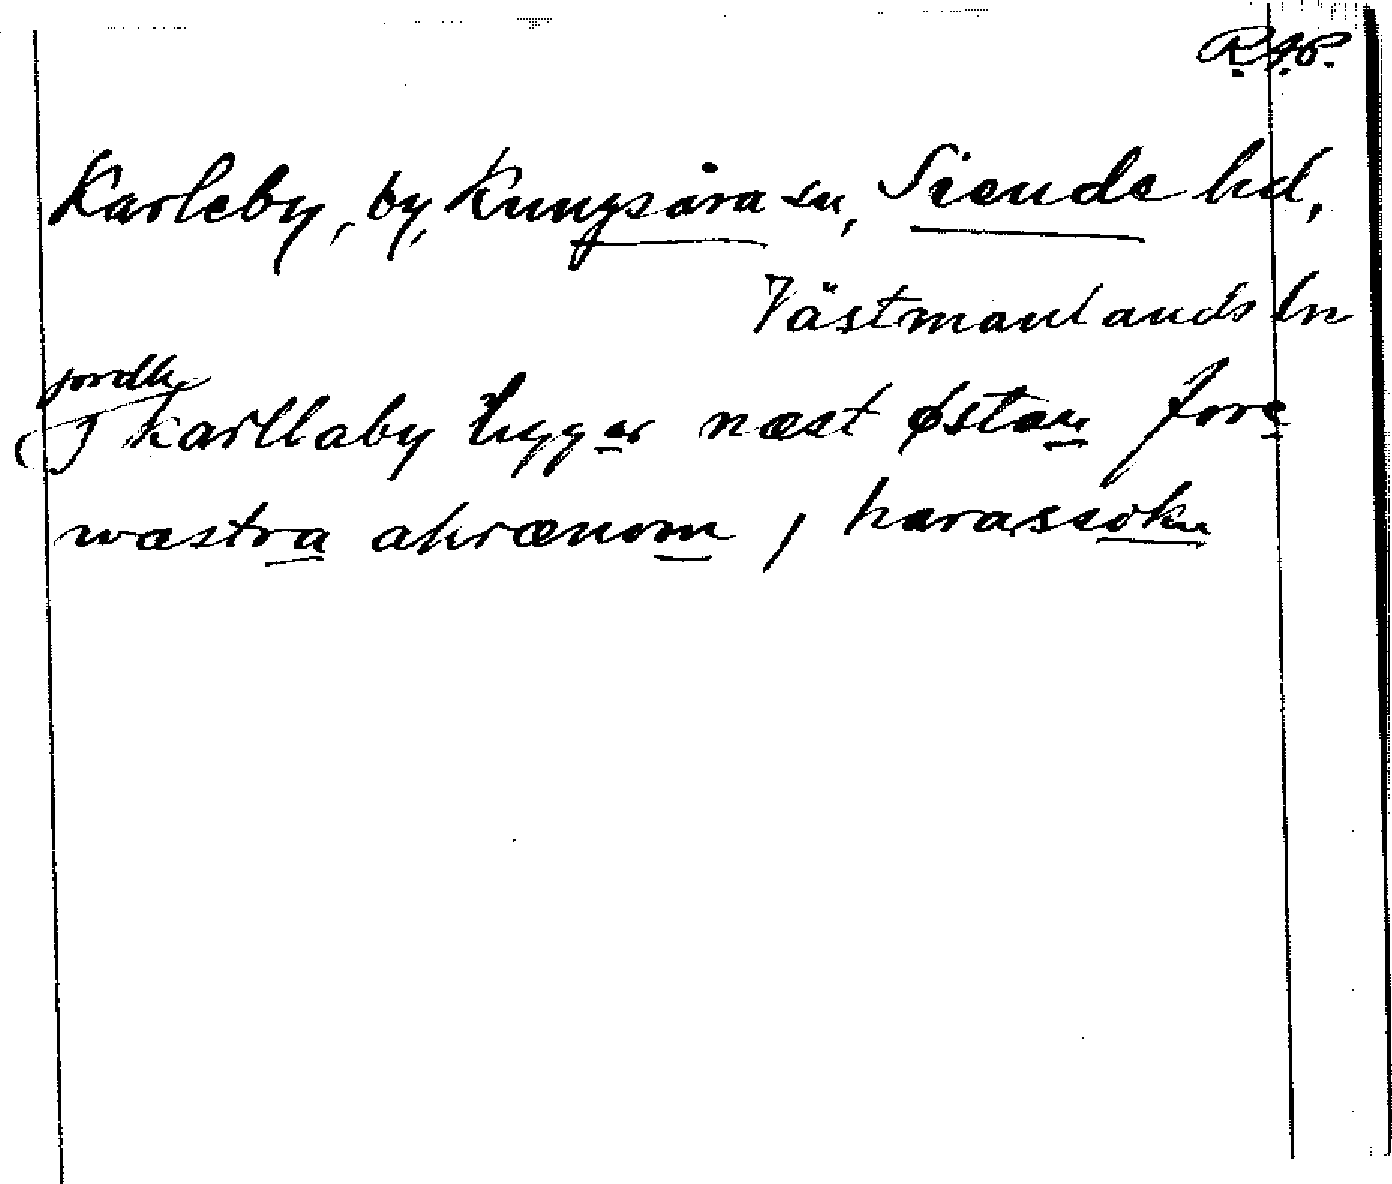 R.A.P.
Karleby, by, Kungsåra sn, Siende hd,
Västmanlands ln
jordk
J karllaby ligger næst østan fore
wæstra akrænom, harassokn